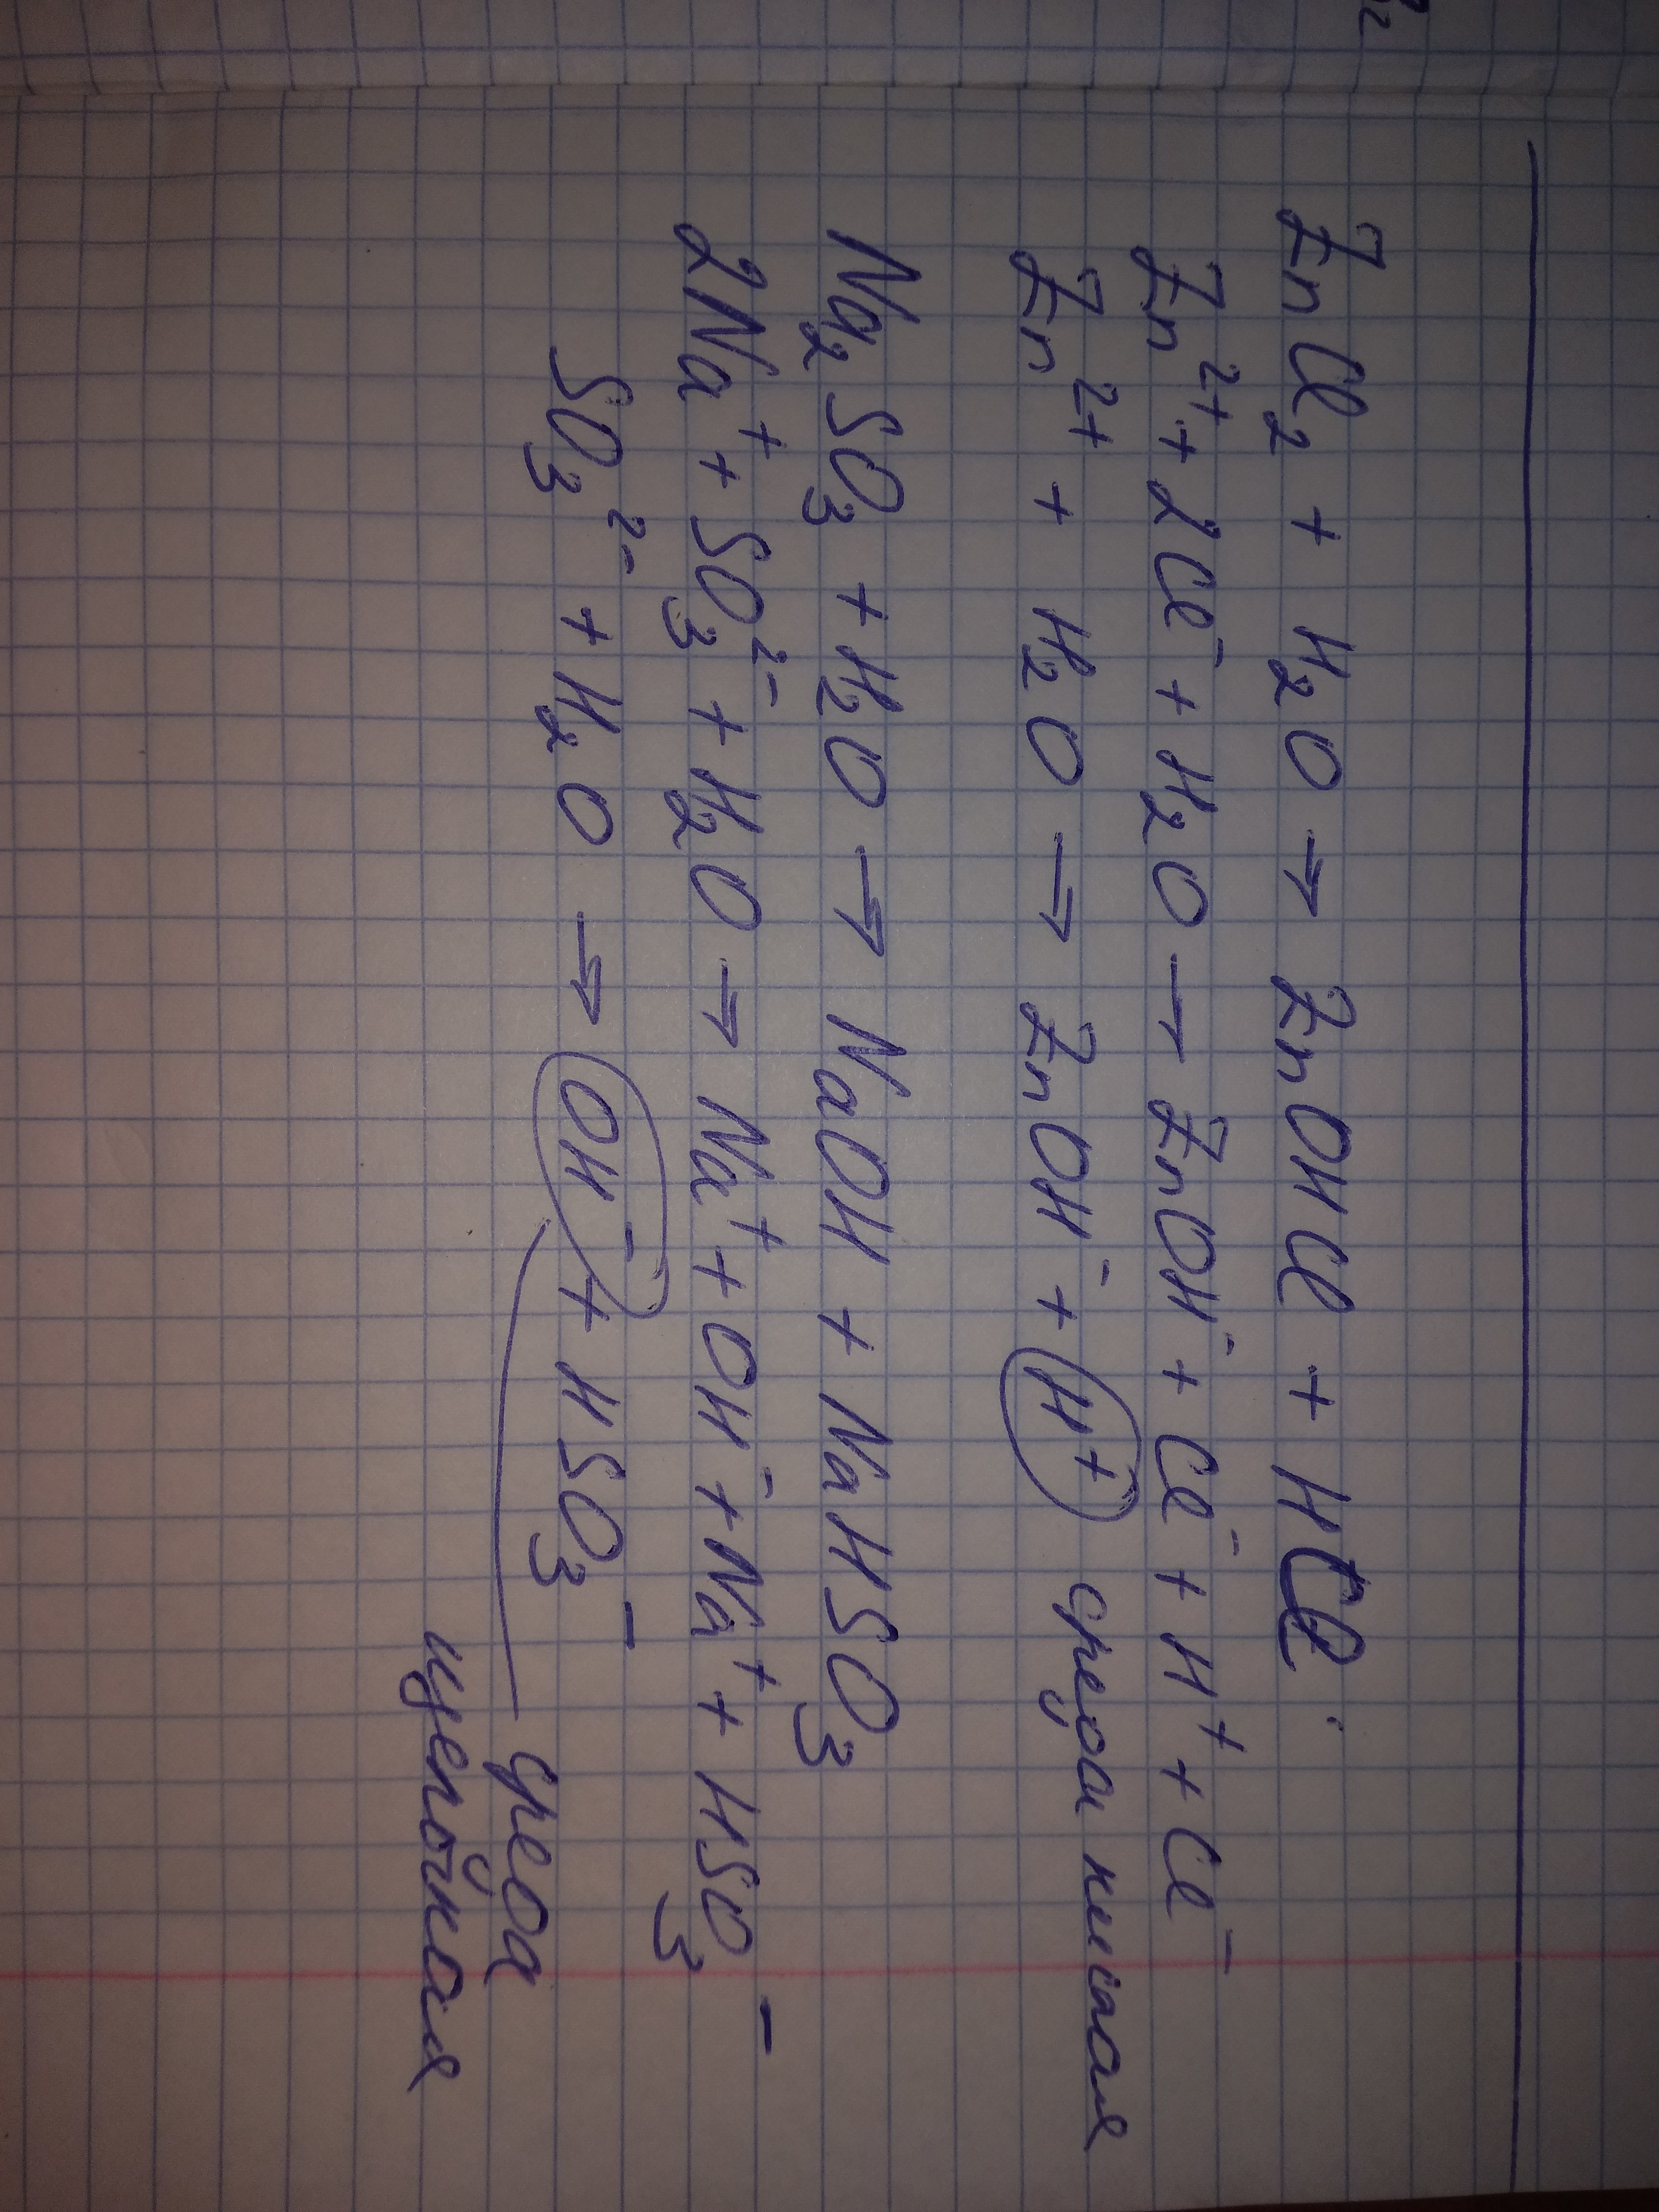 ZnCl₂ + H₂O → ZnOHCl + HCl
Zn²⁺ + 2Cl⁻ + H₂O → ZnOH⁻ + Cl⁻ + H⁺ + Cl⁻
Zn²⁺ + H₂O → ZnOH⁻ + H⁺ среда кислая
Na₂SO₃ + H₂O → NaOH + NaHSO₃
2Na⁺ + SO₃²⁻ + H₂O → Na⁺ + OH⁻ + Na⁺ + HSO₃⁻
SO₃²⁻ + H₂O → OH⁻ + HSO₃⁻
среда
щелочная